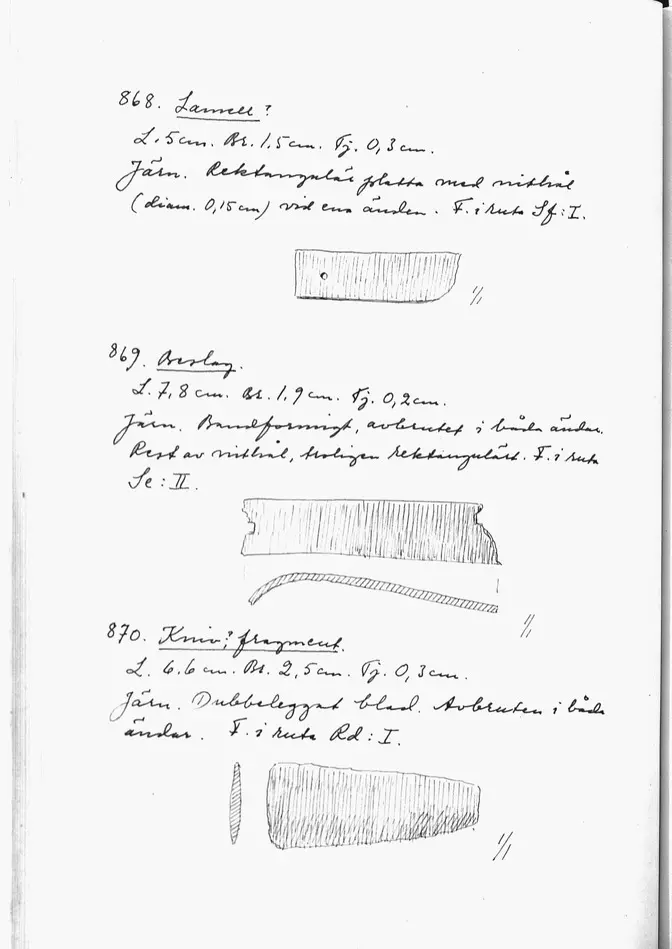 868. Lamell?
L. 5 cm. Br. 1,5 cm. Tj. 0,3 cm.
Järn. Rektangulär platta med nithål
(diam. 0,15 cm) vid ena änden. F. i ruta Sf : I.
1/1
869. Beslag.
L. 7,8 cm. Br. 1,9 cm. Tj. 0,2 cm.
Järn. Bandformigt, avbrutet i båda ändar.
Rest av nithål, troligen rektangulärt. F. i ruta
Se : II.
1/1
870. Kniv?, fragment.
L. 6,6 cm. Br. 2,5 cm. Tj. 0,3 cm.
Järn. Dubbeleggat blad. Avbruten i båda
ändar. F. i ruta Rd : I.
1/1